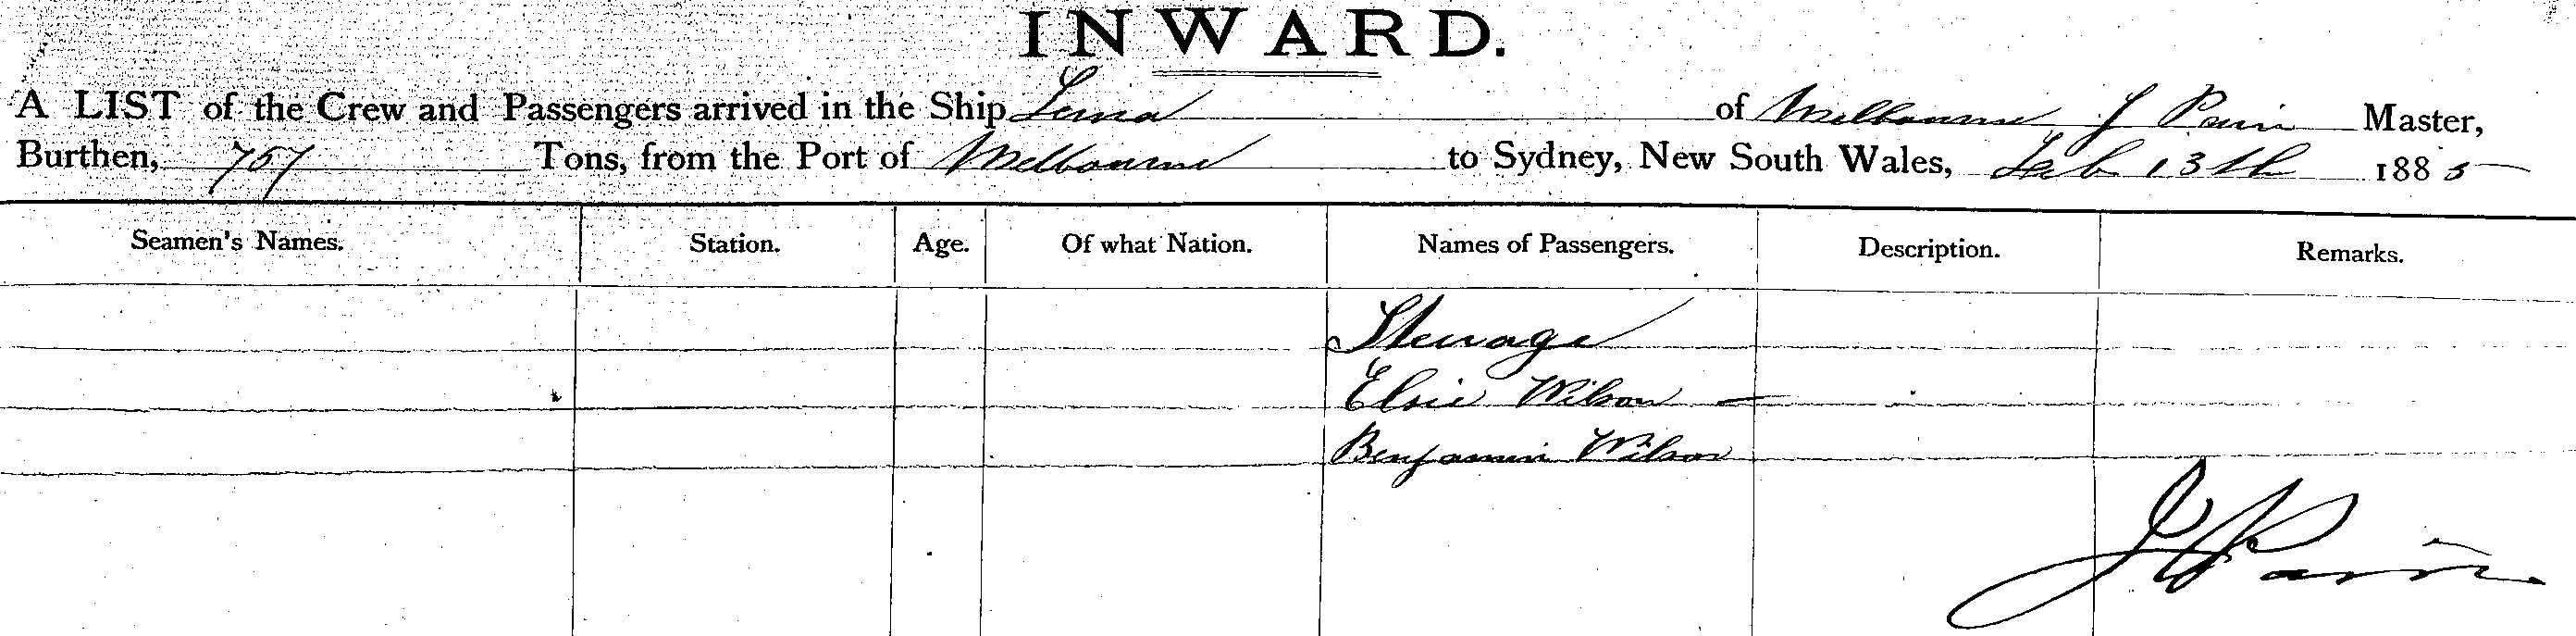 INWARD.
A LIST of the Crew and Passengers arrived in the Ship of Melbourne J Master,
Burthen, 757 Tons, from the Port of Melbourne to Sydney, New South Wales, Feb 13th 1885
Seamen's Names. Station. Age. Of what Nation. Names of Passengers. Description. Remarks.
Steerage
Elsie Wilson
Benjamin Wilson